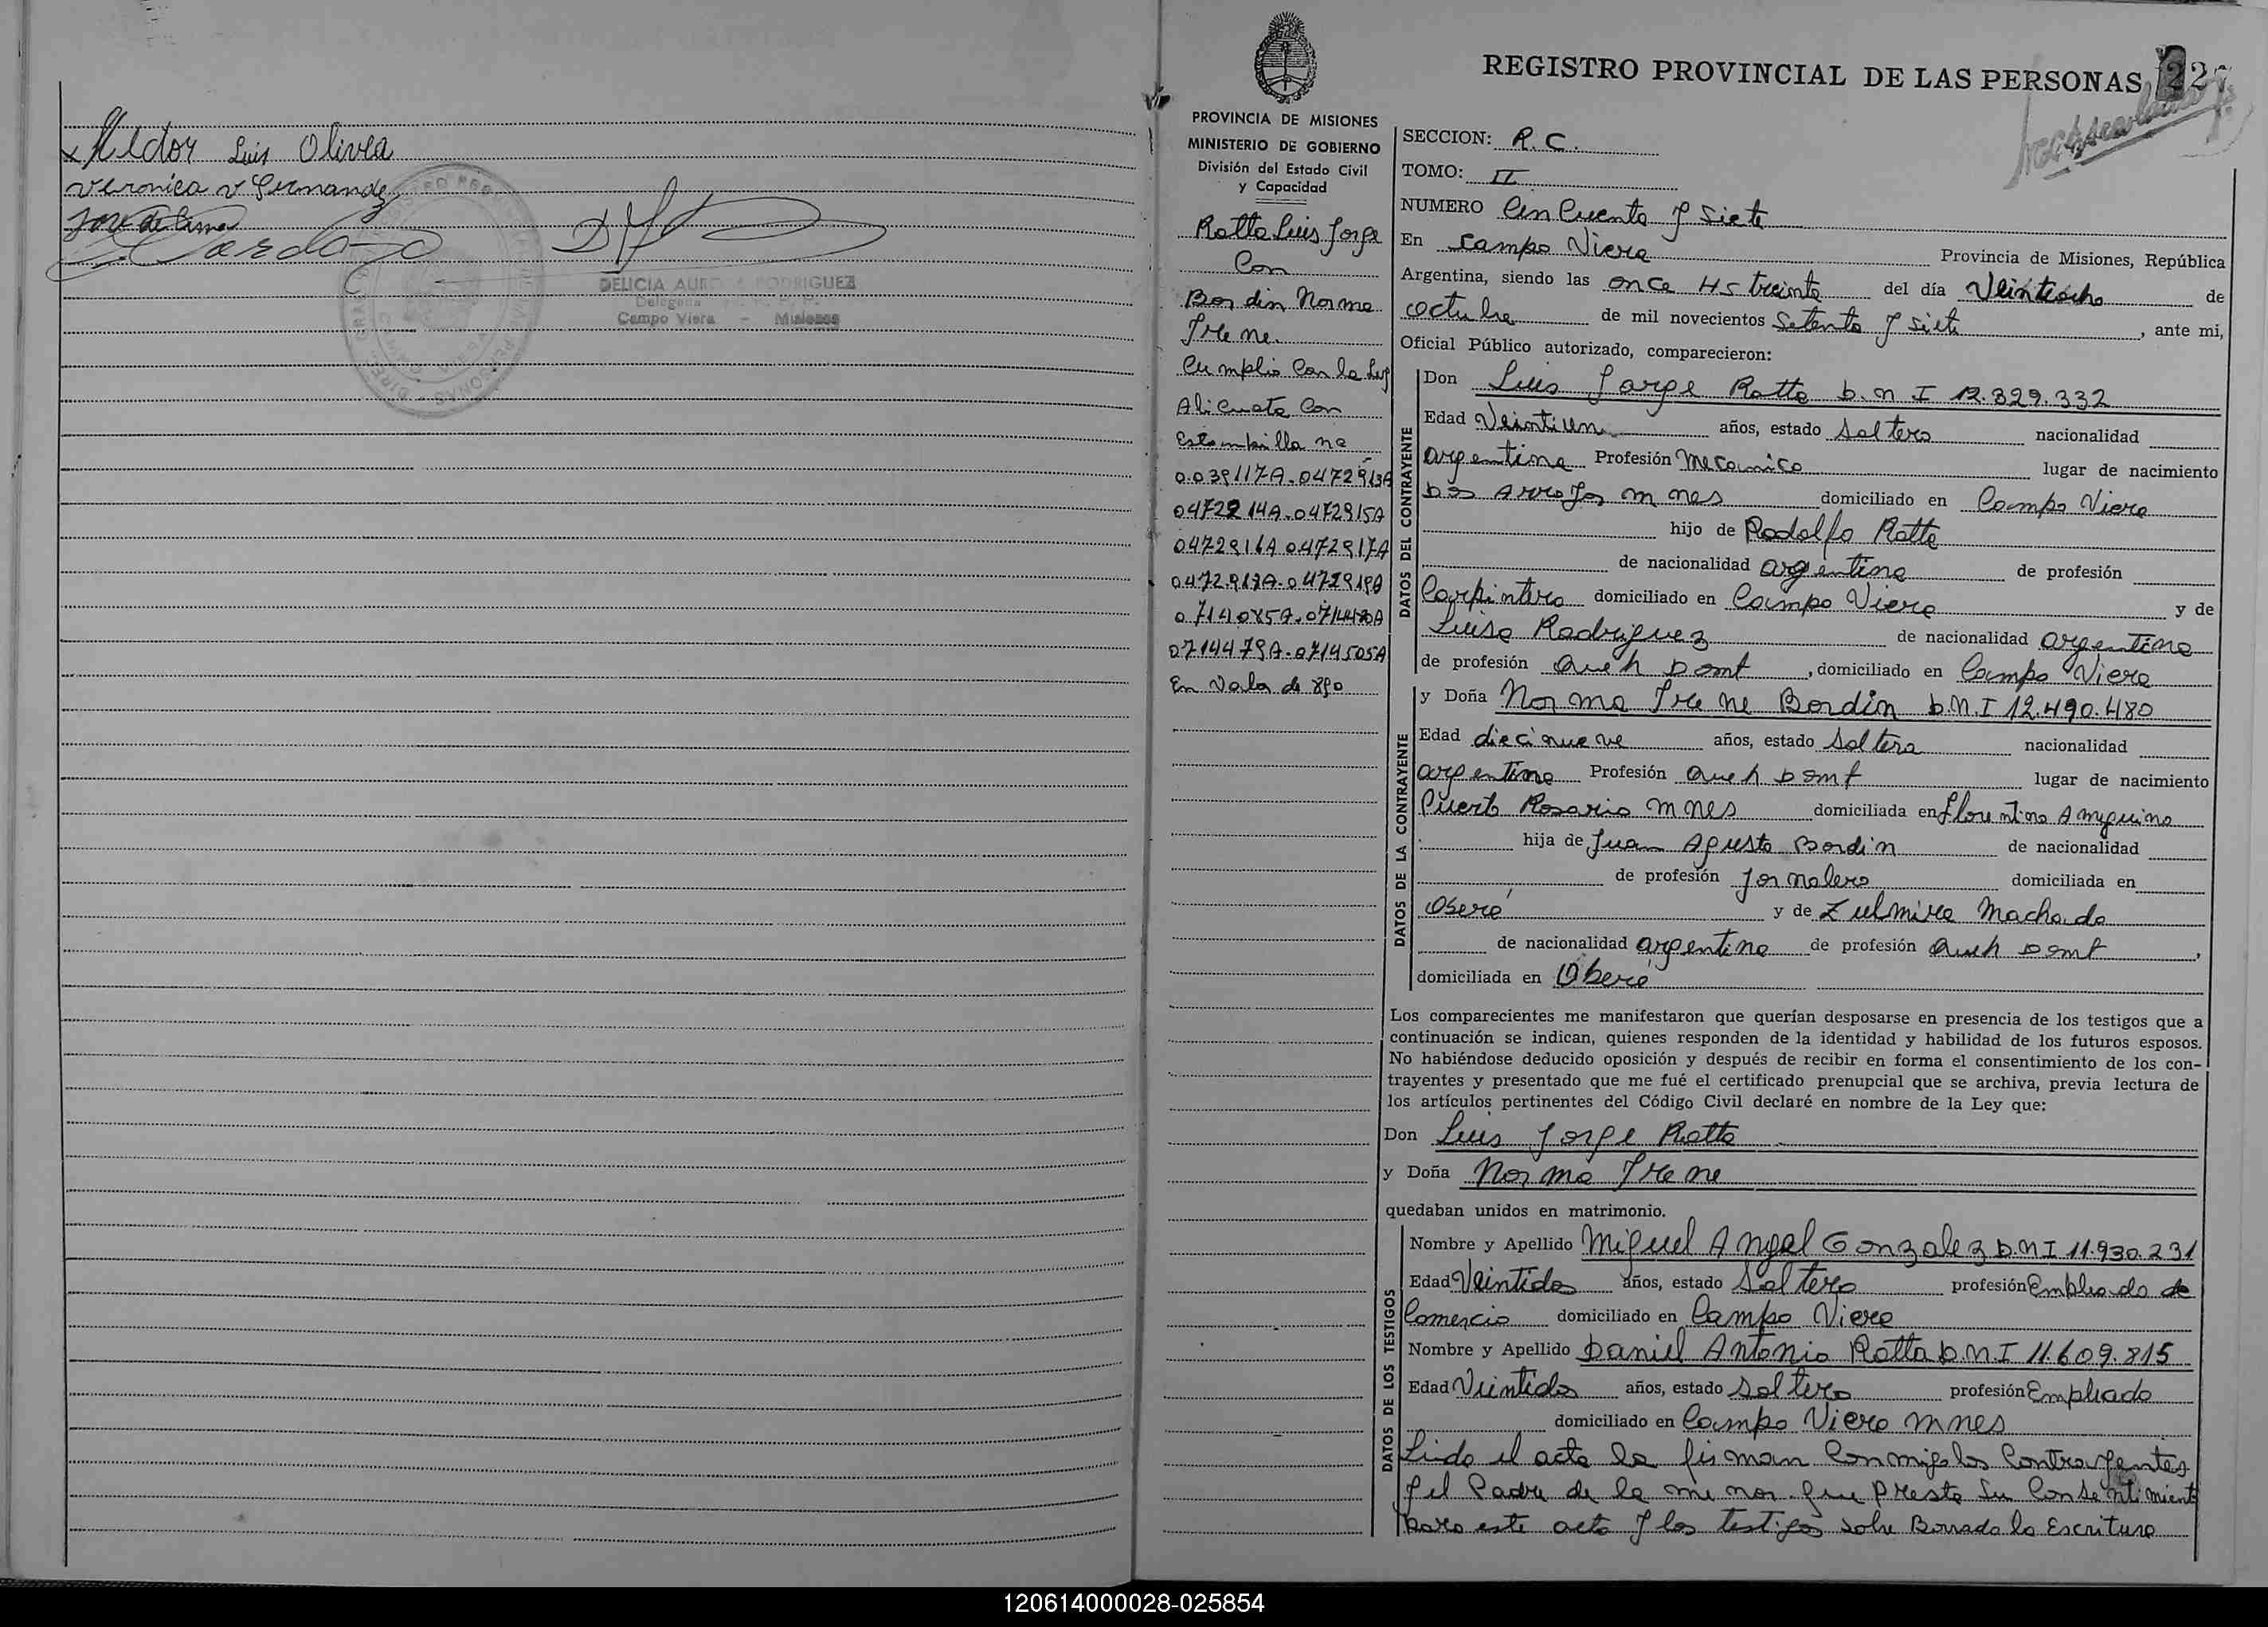 Hldor Luis Olivea
Veronica v Fernandez
Jose de Lima
Cardozo
DELICIA AURORA RODRIGUEZ
Delegada
Campo Viera - Misiones
PROVINCIA DE MISIONES
MINISTERIO DE GOBIERNO
División del Estado Civil
y Capacidad
Rotta Luis Jorge
Con
Bordin Norma
Irene.
Cumplio Con la Ley
Alicuota Con
Estampilla na
0472914A-0472915A
0472916A 0472917A
0714479A-0714505A
En Valor de 890
REGISTRO PROVINCIAL DE LAS PERSONAS 227
SECCION: R.C.
TOMO: II
NUMERO Cincuenta y Siete
En Campo Viera Provincia de Misiones, República
Argentina, siendo las once Hs treinta del día Veintiocho de
octubre de mil novecientos Setenta y siete, ante mi,
Oficial Público autorizado, comparecieron:
DATOS DEL CONTRAYENTE
Don Luis Jorge Rotta D.N.I 12.329.332
Edad Veintiun años, estado Soltero nacionalidad
argentina Profesión Mecanico lugar de nacimiento
Dos Arroyos Mnes domiciliado en Campo Viera
hijo de Rodolfo Rotta
de nacionalidad argentina de profesión
Carpintero domiciliado en Campo Viera y de
Luisa Rodriguez de nacionalidad argentina
de profesión Queh Domt, domiciliado en Campo Viera
DATOS DE LA CONTRAYENTE
y Doña Norma Irene Bordin D.N.I 12.490.480
Edad diecinueve años, estado Soltera nacionalidad
argentina Profesión Queh Domt lugar de nacimiento
Puerto Rosario Mnes domiciliada en Florentino Ameguino
hija de Juan Agusto Bordin de nacionalidad
de profesión Jornalero domiciliada en
Oberá y de Zulmira Machado
de nacionalidad argentina de profesión Queh Domt,
domiciliada en Oberá
Los comparecientes me manifestaron que querían desposarse en presencia de los testigos que a
continuación se indican, quienes responden de la identidad y habilidad de los futuros esposos.
No habiéndose deducido oposición y después de recibir en forma el consentimiento de los con-
trayentes y presentado que me fué el certificado prenupcial que se archiva, previa lectura de
los artículos pertinentes del Código Civil declaré en nombre de la Ley que:
Don Luis Jorge Rotta
y Doña Norma Irene
quedaban unidos en matrimonio.
DATOS DE LOS TESTIGOS
Nombre y Apellido Miguel Angel Gonzalez D.N.I 11.930.231
Edad Veintidos años, estado Soltero profesión Empleado de
Comercio domiciliado en Campo Viera
Nombre y Apellido Daniel Antonio Rotta D.N.I 11.609.815
Edad Veintidos años, estado Soltero profesión Empleado
domiciliado en Campo Viera Mnes
Leida el acta la firman Conmigo los Contrayentes
y el Padre de la menor que presta Su Consentimiento
para este acto y los testigos sobre Borrado la Escritura
120614000028-025854